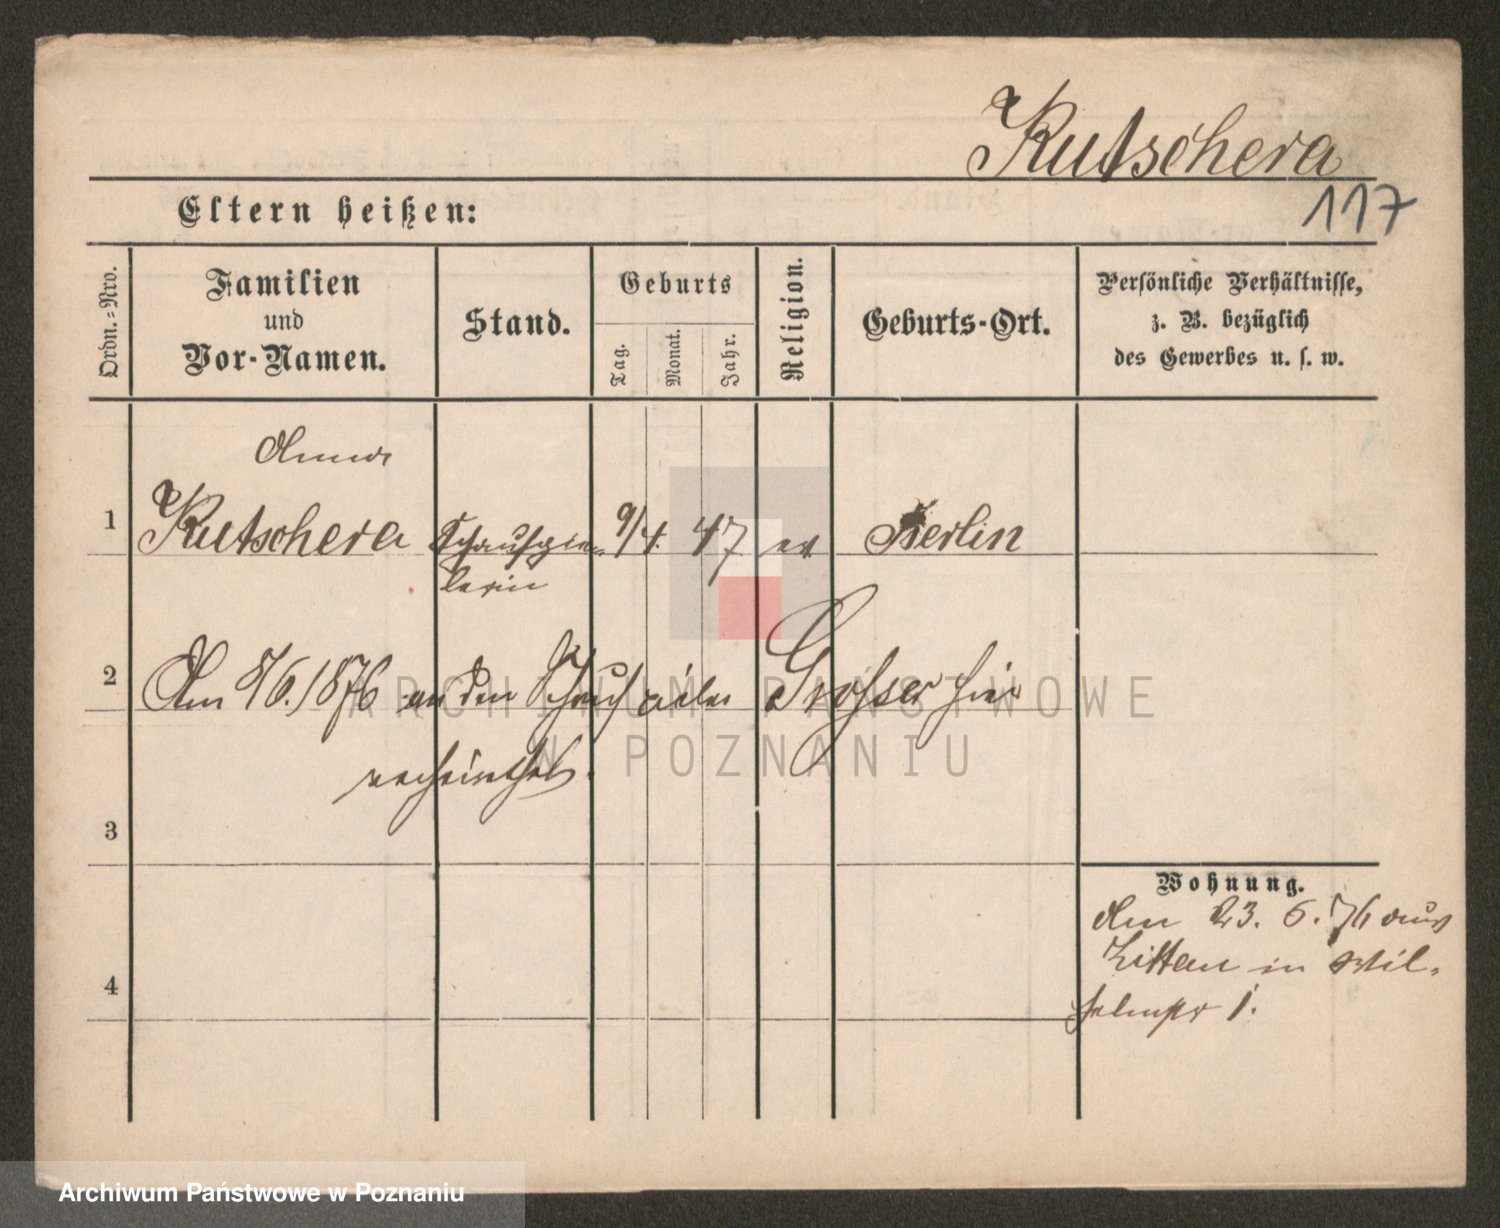 Kutschera
117
Eltern heißen:
Ordn.=Nro.
Familien
und
Vor-Namen.
Stand.
Geburts
Tag.
Monat.
Jahr.
Religion.
Geburts-Ort.
Persönliche Verhältnisse,
z. B. bezüglich
des Gewerbes u. s. w.
Anna
1 Kutschera Schauspie= 9/4. 47 ev. Berlin
lerin
2 Am 8/6. 1876 an den Grosser hier
verheirathet.
3
Wohnung.
Am 23. 6. 76 aus
in Wil-
helmstr 1.
4
ARCHIWUM PAŃSTWOWE
W POZNANIU
Archiwum Państwowe w Poznaniu